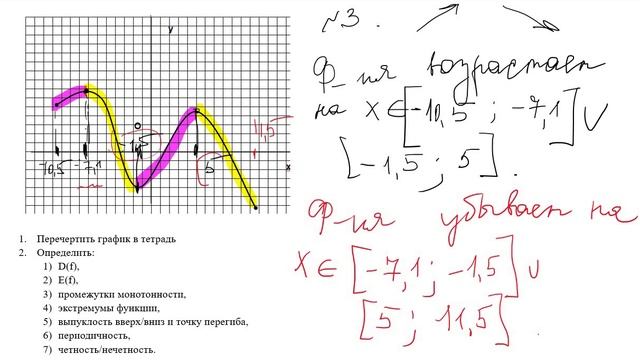 y
0
-10,5
-7,1
-1,5
5
11,5
x
1. Перечертить график в тетрадь
2. Определить:
1) D(f),
2) E(f),
3) промежутки монотонности,
4) экстремумы функции,
5) выпуклость вверх/вниз и точку перегиба,
6) периодичность,
7) четность/нечетность.
№3.
Ф-ия возрастает
на x ∈ [-10,5 ; -7,1] ∪
[-1,5 ; 5].
Ф-ия убывает на
x ∈ [-7,1 ; -1,5] ∪
[5 ; 11,5].